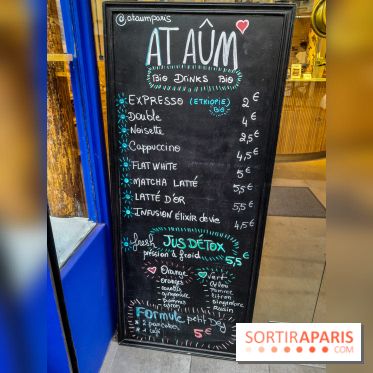 @ataumparis
AT AÛM
Bio DRINKS Bio
EXPRESSO (ETHIOPIE) Bio 2€
Double 4€
Noisette 2,5€
Cappuccino 4,5€
FLAT WHITE 5€
MATCHA LATTÉ 5,5€
LATTÉ D'OR 5,5€
INFUSION ÉLIXIR de vie 4,5€
fresh JUS DÉTOX 5,5€
pression à froid
Orange Vert
oranges
citron
gingembre
Formule petit Dej
5€
SORTIRAPARIS
.com